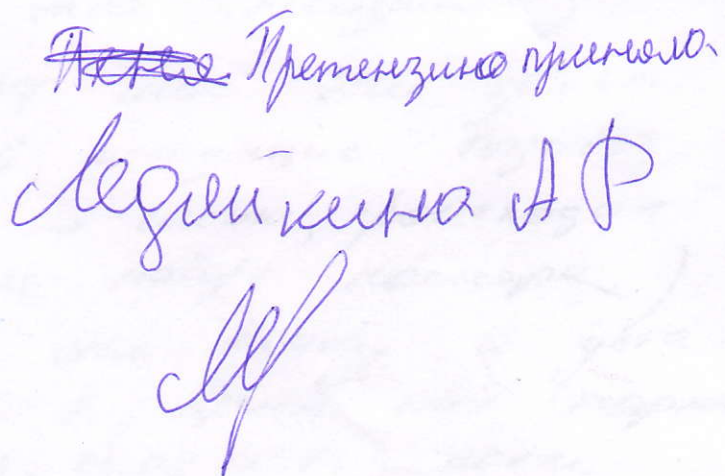 Претензию приняла
Ледяйкина А Р